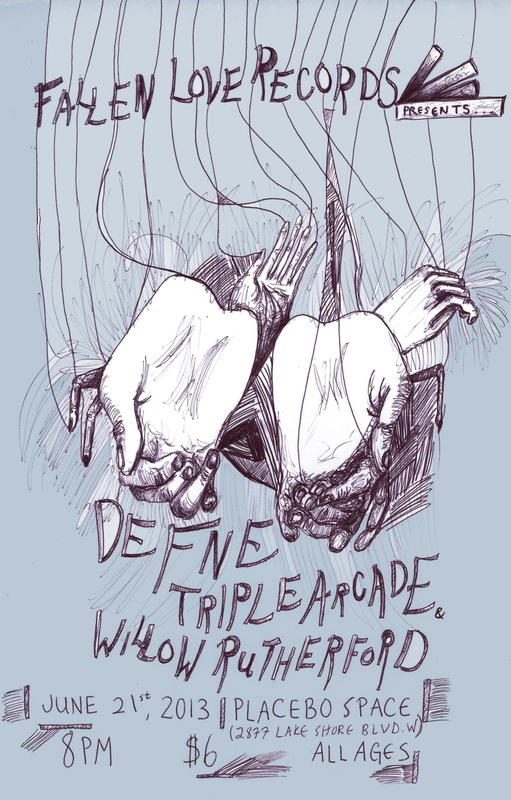 FALLEN LOVE RECORDS
PRESENTS...
DEFNE
TRIPLE ARCADE &
WILLOW RUTHERFORD
JUNE 21st, 2013 | PLACEBO SPACE
(2877 LAKE SHORE BLVD. W)
8PM $6 ALL AGES